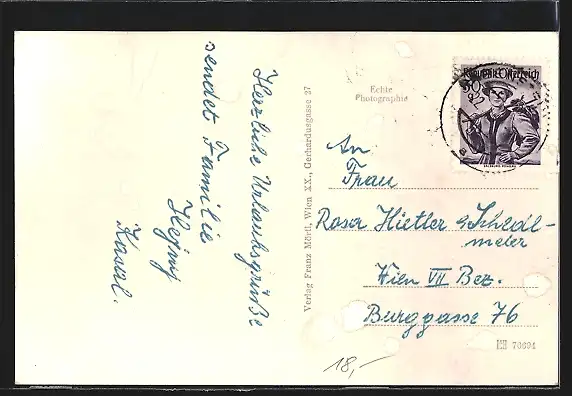 Herzliche Urlaubsgrüße
sendet Familie
Karl.
Verlag Franz Mörtl, Wien XX., Gerhardusgasse 37
Echte
Photographie
Republik Österreich
An
Frau
Rosa Hietler
meier
Wien VII Bez.
Burggasse 76
76694
18,-